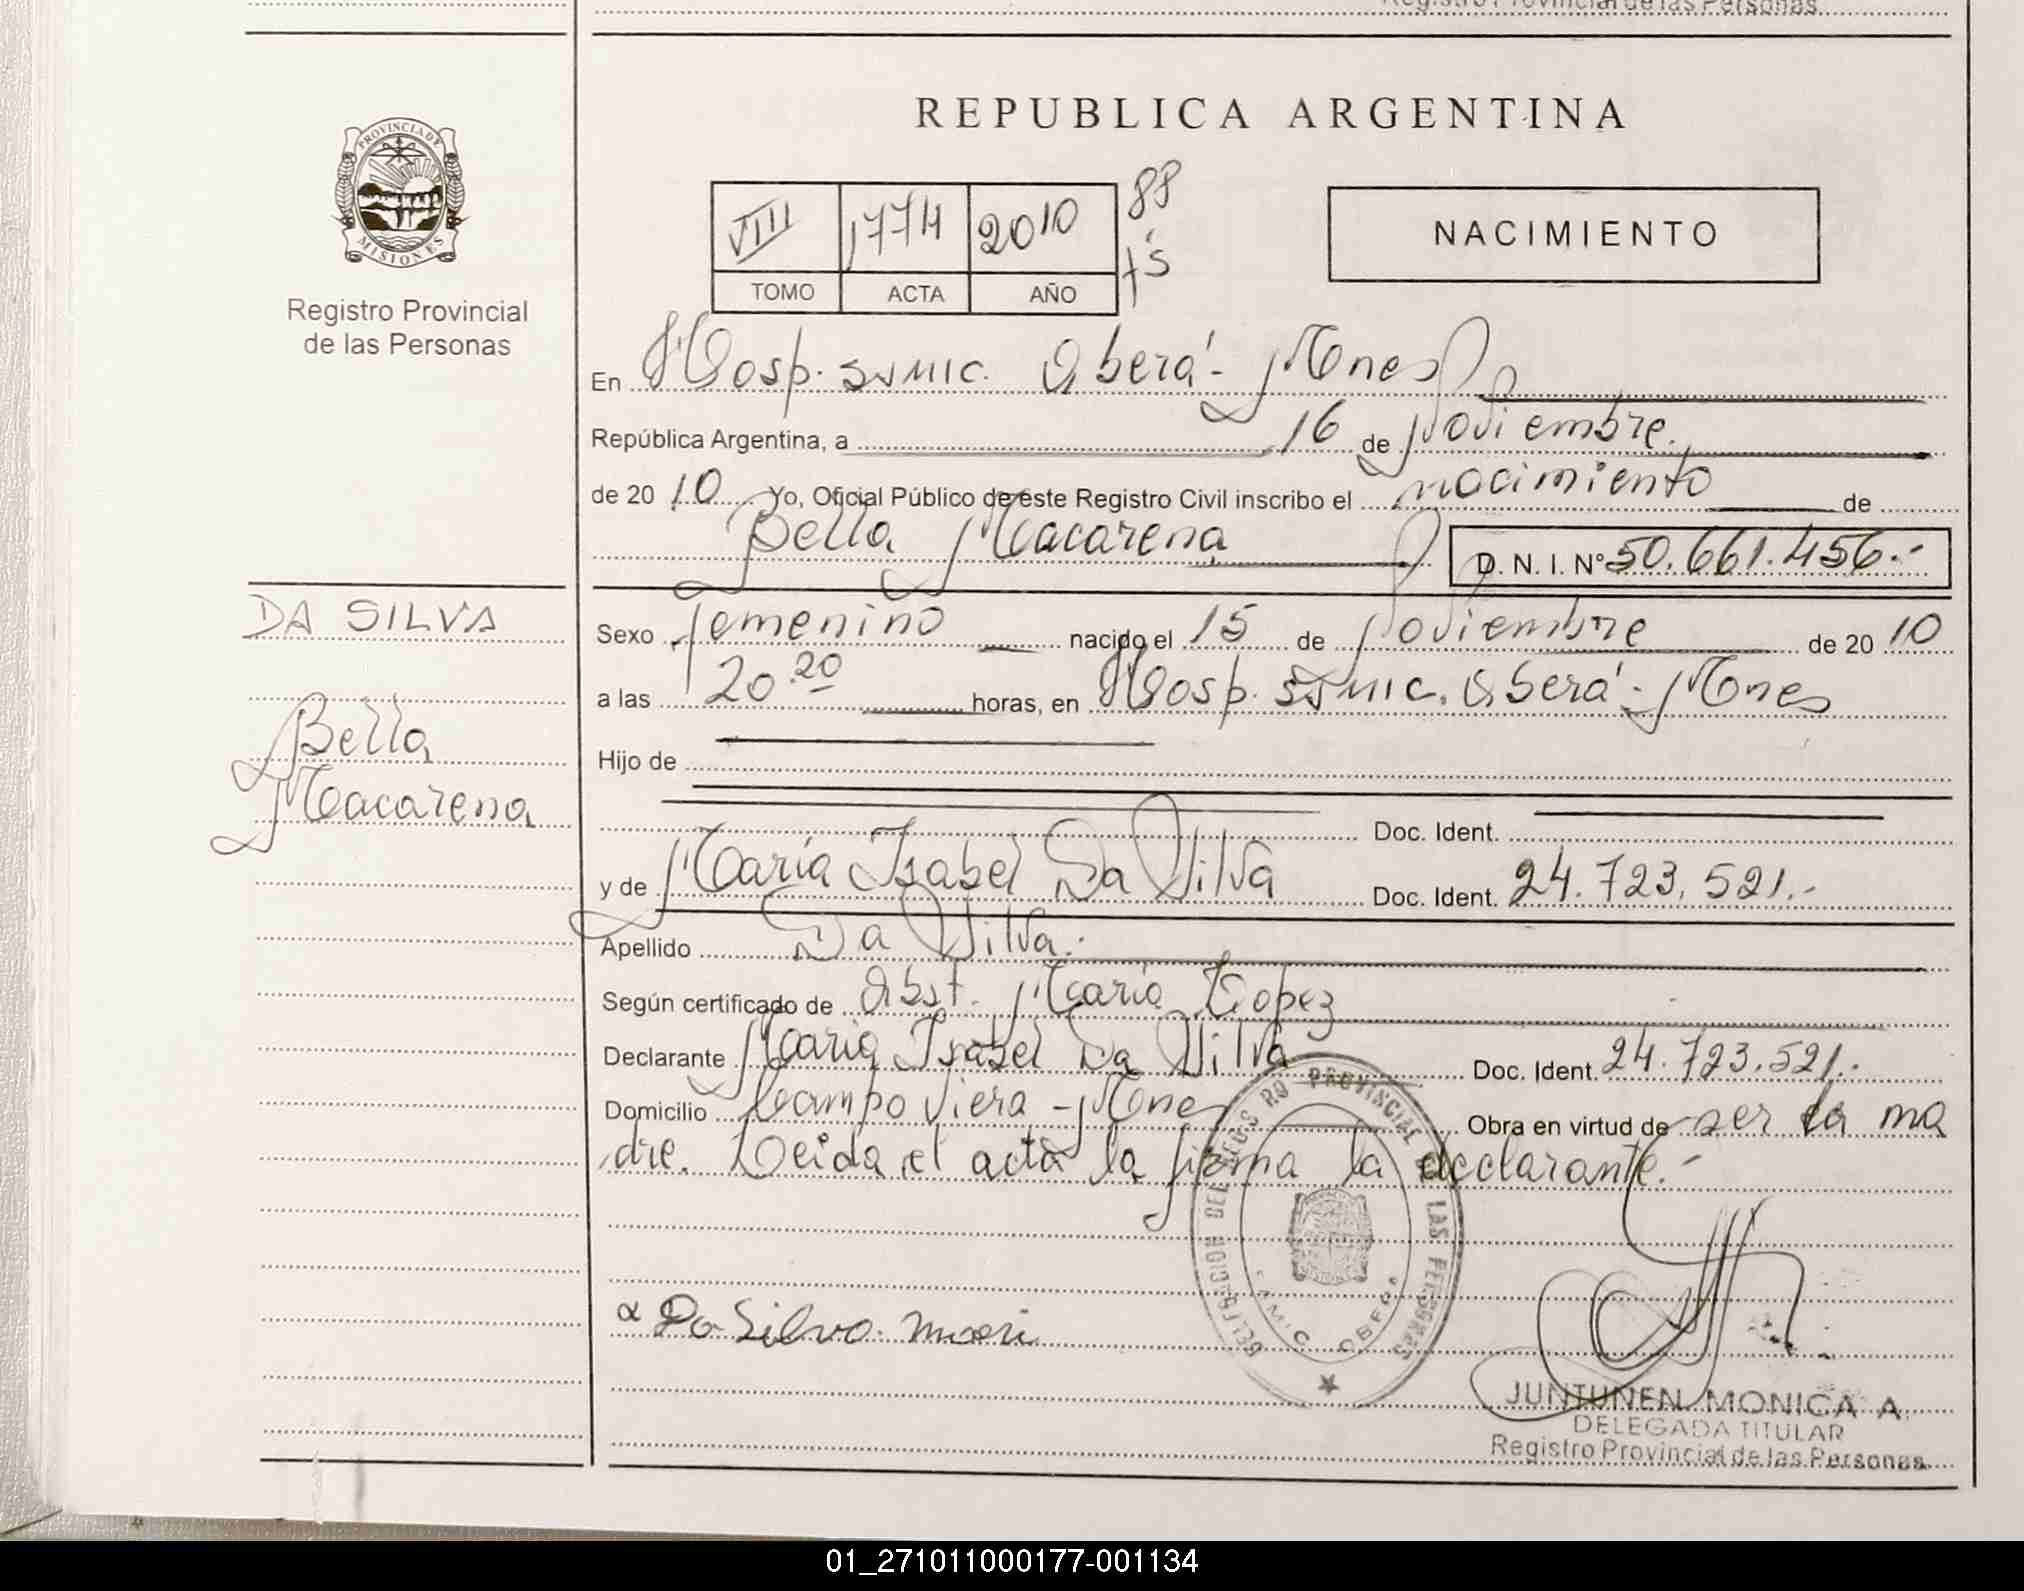 Registro Provincial de las Personas
REPUBLICA ARGENTINA
PROVINCIA DE
MISIONES
Registro Provincial
de las Personas
VIII 1774 2010
TOMO ACTA AÑO
88
NACIMIENTO
En Hosp. SS MIC. Oberá - Mnes
República Argentina, a 16 de Noviembre.
de 20 10 Yo, Oficial Público de este Registro Civil inscribo el nacimiento de
Bella Macarena D. N. I. Nº 50.661.456.-
DA SILVA
Bella
Macarena
Sexo femenino nacido el 15 de Noviembre de 20 10
a las 20.20 horas, en Hosp. SS MIC. Oberá - Mnes
Hijo de
Doc. Ident.
y de María Isabel Da Silva Doc. Ident. 24.723.521.-
Apellido Da Silva.
Según certificado de Obst. María Lopez
Declarante María Isabel Da Silva Doc. Ident. 24.723.521.-
Domicilio Campo Viera - Mnes Obra en virtud de ser la ma
dre. Leida el acta la firma la declarante.-
Da Silva
DELEGACION DEL REGISTRO PROVINCIAL DE LAS PERSONAS
OBERA
JUNTUNEN MONICA A.
DELEGADA TITULAR
Registro Provincial de las Personas
01_271011000177-001134